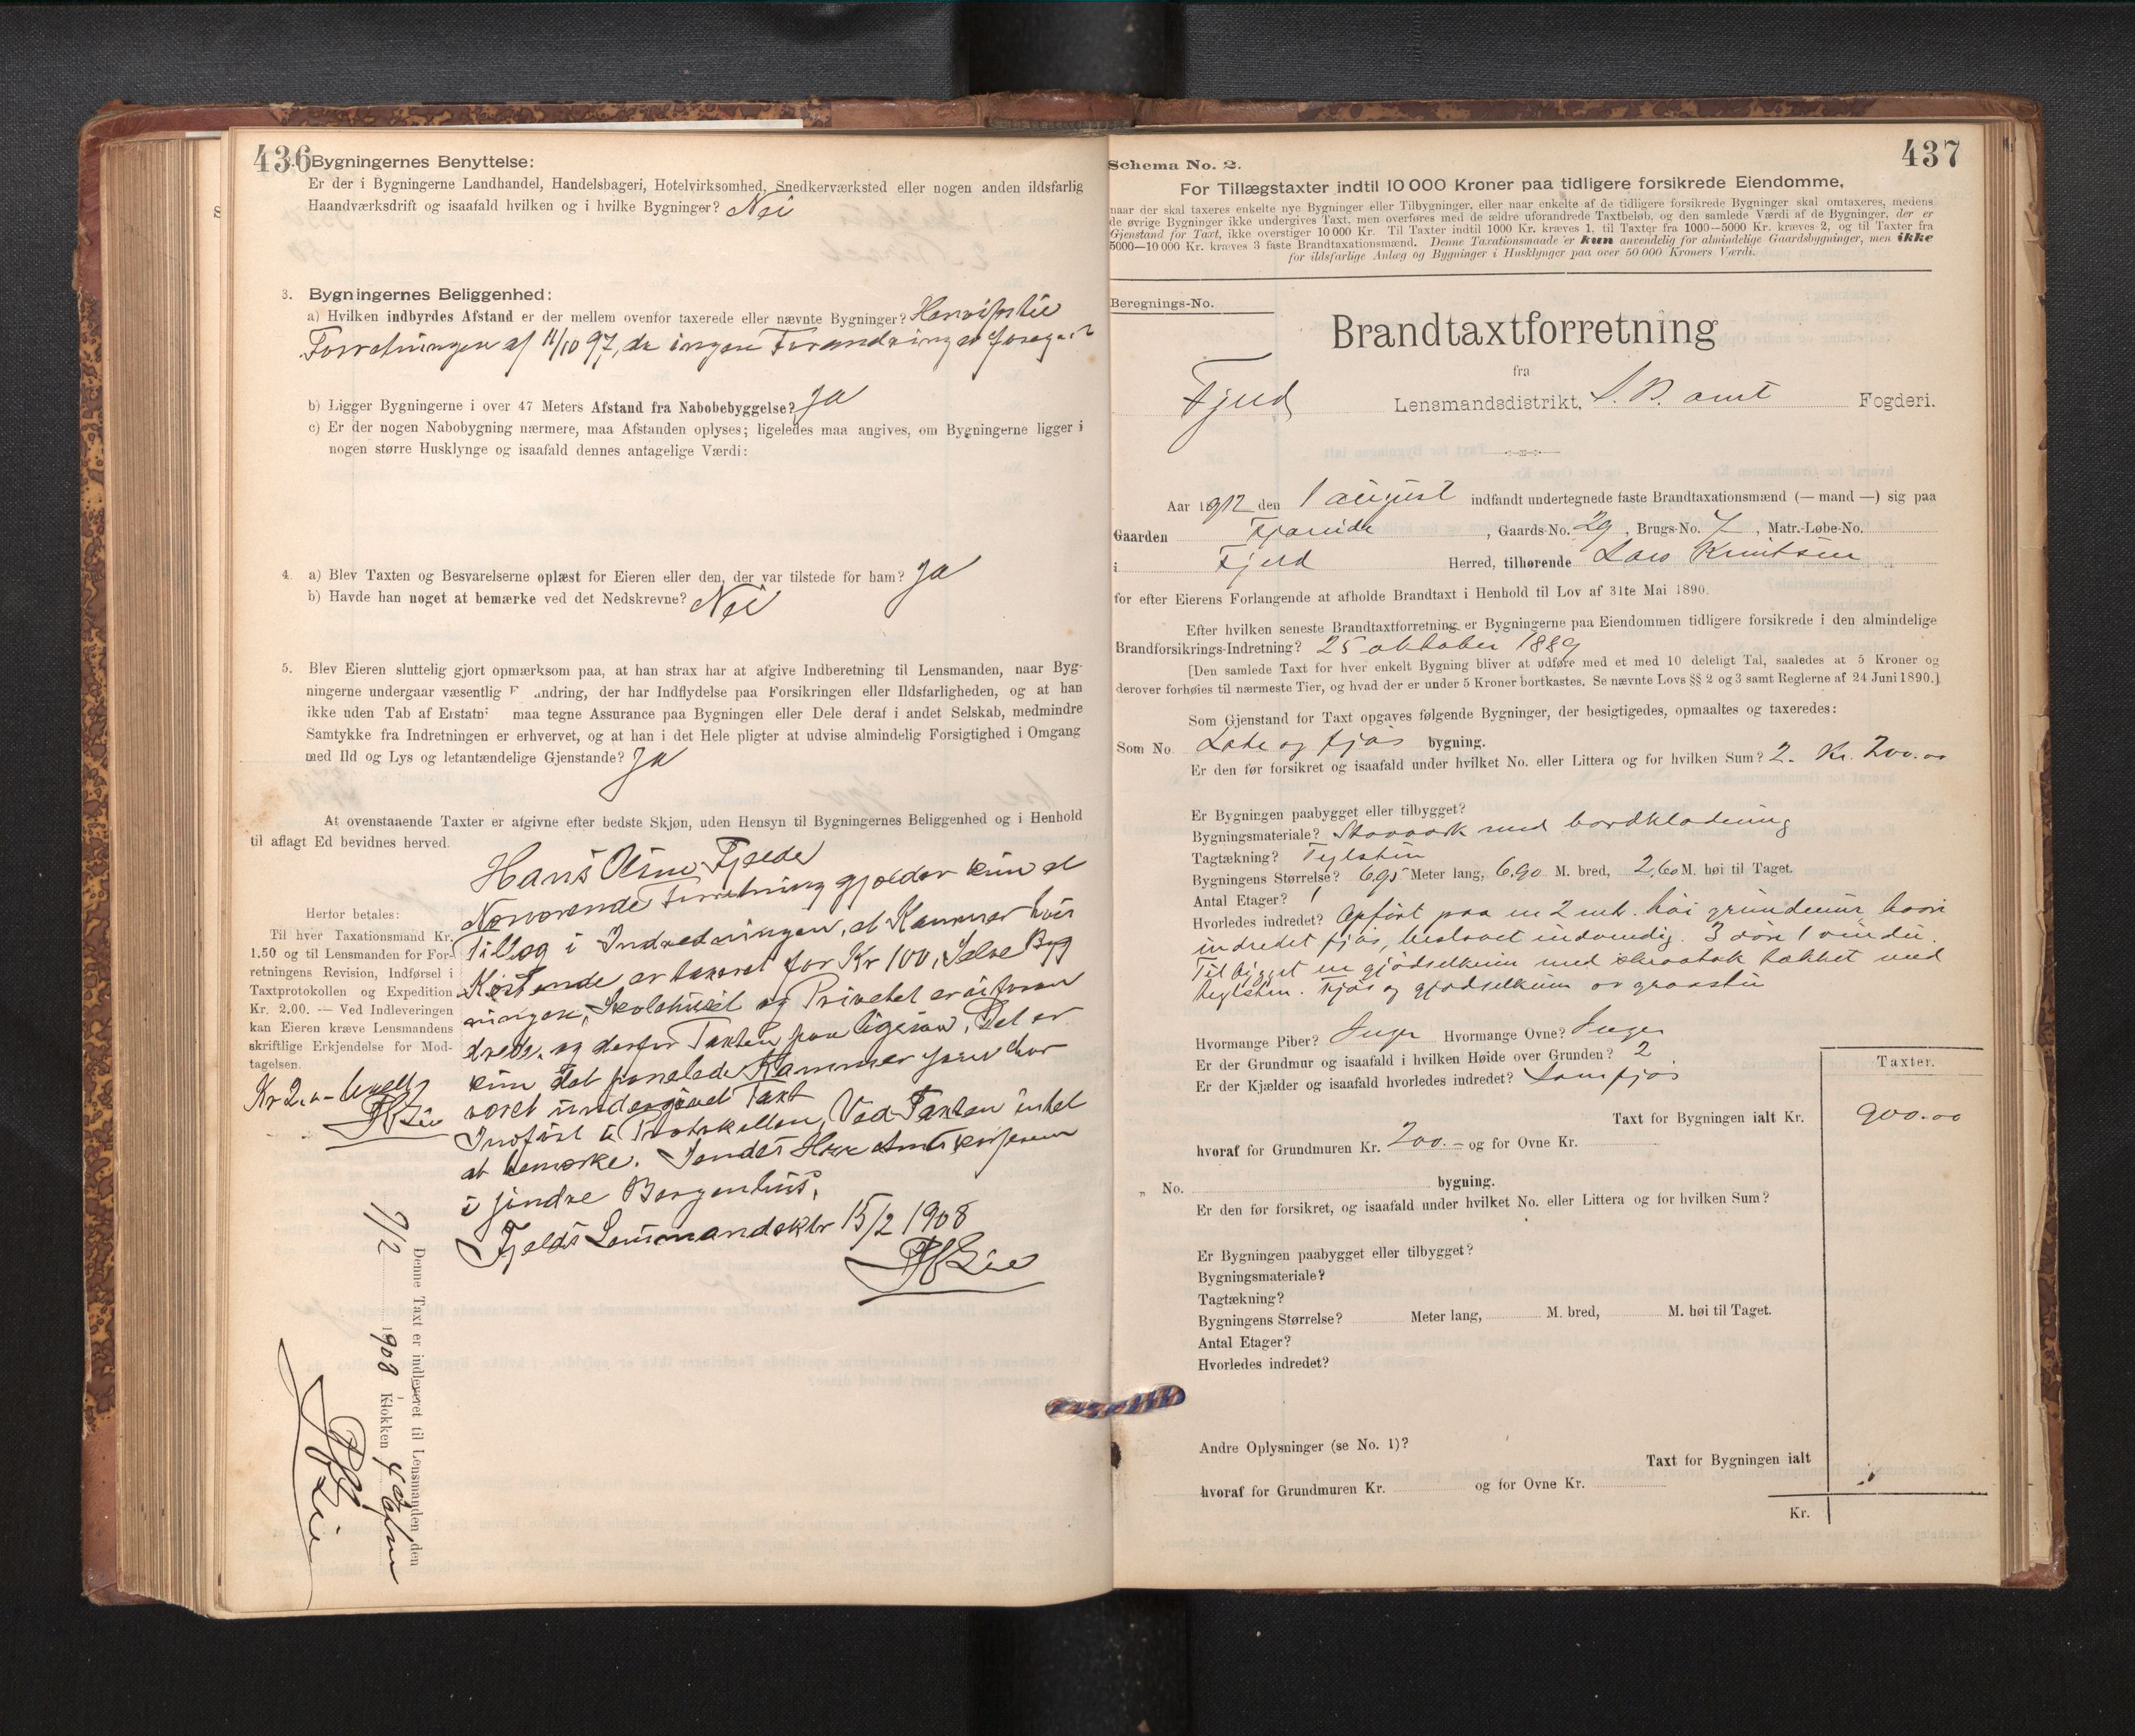 436
Bygningernes Benyttelse:
Er der i Bygningerne Landhandel, Handelsbageri, Hotelvirksomhed, Snedkerværksted eller nogen anden ildsfarlig
Haandværksdrift og isaafald hvilken og i hvilke Bygninger? Nei
3. Bygningernes Beliggenhed:
a) Hvilken indbyrdes Afstand er der mellem ovenfor taxerede eller nævnte Bygninger? Henvises til
Forretningen af 11/10 97, da ingen Forandring er foregaat
b) Ligger Bygningerne i over 47 Meters Afstand fra Nabobebyggelse? Ja
c) Er der nogen Nabobygning nærmere, maa Afstanden oplyses; ligeledes maa angives, om Bygningerne ligger i
nogen større Husklynge og isaafald dennes antagelige Værdi:
4. a) Blev Taxten og Besvarelserne oplæst for Eieren eller den, der var tilstede for ham? Ja
b) Havde han noget at bemærke ved det Nedskrevne? Nei
5. Blev Eieren sluttelig gjort opmærksom paa, at han strax har at afgive Indberetning til Lensmanden, naar Byg-
ningerne undergaar væsentlig F andring, der har Indflydelse paa Forsikringen eller Ildsfarligheden, og at han
ikke uden Tab af Erstatn maa tegne Assurance paa Bygningen eller Dele deraf i andet Selskab, medmindre
Samtykke fra Indretningen er erhvervet, og at han i det Hele pligter at udvise almindelig Forsigtighed i Omgang
med Ild og Lys og letantændelige Gjenstande? Ja
At ovenstaaende Taxter er afgivne efter bedste Skjøn, uden Hensyn til Bygningernes Beliggenhed og i Henhold
til aflagt Ed bevidnes herved.
Hans Olsen Fjelde
Nærværende Forretning gjælder kun et
Tillæg i Indredningen, et Kammer hvis
Kostende er taxeret for Kr 100. Selve Byg
ningen, Skolehuset og Privetet er uforan
drede, og derfor Taxten paa ligesaa. Det er
kun det panelede Kammer som har
været undergivet Taxt
Indført i Protokollen, Ved Taxten intet
at bemærke. Sendes Herr Amtskasserer
i søndre Bergenhus.
Fjelds Lensmandsktr 15/2 1908
Herfor betales:
Til hver Taxationsmand Kr.
1.50 og til Lensmanden for For-
retningens Revision, Indførsel i
Taxtprotokollen og Expedition
Kr. 2.00. — Ved Indleveringen
kan Eieren kræve Lensmandens
skriftlige Erkjendelse for Mod-
tagelsen.
Kr 2.
Denne Taxt er indleveret til Lensmanden den
7/2 1908 Klokken 4
437
Schema No. 2.
For Tillægstaxter indtil 10 000 Kroner paa tidligere forsikrede Eiendomme,
naar der skal taxeres enkelte nye Bygninger eller Tilbygninger, eller naar enkelte af de tidligere forsikrede Bygninger skal omtaxeres, medens
de øvrige Bygninger ikke undergives Taxt, men overføres med de ældre uforandrede Taxtbeløb, og den samlede Værdi af de Bygninger, der er
Gjenstand for Taxt, ikke overstiger 10 000 Kr. Til Taxter indtil 1000 Kr. kræves 1, til Taxter fra 1000—5000 Kr. kræves 2, og til Taxter fra
5000—10 000 Kr. kræves 3 faste Brandtaxationsmænd. Denne Taxationsmaade er kun anvendelig for almindelige Gaardsbygninger, men ikke
for ildsfarlige Anlæg og Bygninger i Husklynger paa over 50 000 Kroners Værdi.
Beregnings-No.
Brandtaxtforretning
fra
Fjeld Lensmandsdistrikt, S. B. amt Fogderi.
Aar 1912 den 1 august indfandt undertegnede faste Brandtaxationsmænd (— mand —) sig paa
Gaarden , Gaards-No. 29, Brugs-No. 7, Matr.-Løbe-No.
i Fjeld Herred, tilhørende Lars Knutsen
for efter Eierens Forlangende at afholde Brandtaxt i Henhold til Lov af 31te Mai 1890.
Efter hvilken seneste Brandtaxtforretning er Bygningerne paa Eiendommen tidligere forsikrede i den almindelige
Brandforsikrings-Indretning? 25 oktober 1889
[Den samlede Taxt for hver enkelt Bygning bliver at udføre med et med 10 deleligt Tal, saaledes at 5 Kroner og
derover forhøies til nærmeste Tier, og hvad der er under 5 Kroner bortkastes. Se nævnte Lovs §§ 2 og 3 samt Reglerne af 24 Juni 1890.]
Som Gjenstand for Taxt opgaves følgende Bygninger, der besigtigedes, opmaaltes og taxeredes:
Som No. Lade og fjøs bygning.
Er den før forsikret og isaafald under hvilket No. eller Littera og for hvilken Sum? 2. Kr. 200.00
Er Bygningen paabygget eller tilbygget?
Bygningsmateriale? Stavværk med bordklædning
Tagtækning? Teglsten
Bygningens Størrelse? 6,95 Meter lang, 6,90 M. bred, 2,60 M. høi til Taget.
Antal Etager? 1
Hvorledes indredet? Opført paa en 2 mtr. høi grundmur, hvori
indredet fjøs, indvendig. 3 døre 1 vindu.
Tilbygget en gjødselkum med skraatak tækket med
teglsten. Fjøs og gjødselkum av graasten
Hvormange Piber? Ingen Hvormange Ovne? Ingen
Er der Grundmur og isaafald i hvilken Høide over Grunden? 2
Er der Kjælder og isaafald hvorledes indredet? Som fjøs
Taxter.
Taxt for Bygningen ialt Kr. 900.00
hvoraf for Grundmuren Kr. 200.– og for Ovne Kr.
„ No. bygning.
Er den før forsikret, og isaafald under hvilket No. eller Littera og for hvilken Sum?
Er Bygningen paabygget eller tilbygget?
Bygningsmateriale?
Tagtækning?
Bygningens Størrelse? Meter lang, M. bred, M. høi til Taget.
Antal Etager?
Hvorledes indredet?
Andre Oplysninger (se No. 1)?
Taxt for Bygningen ialt
hvoraf for Grundmuren Kr. og for Ovne Kr.
Kr.